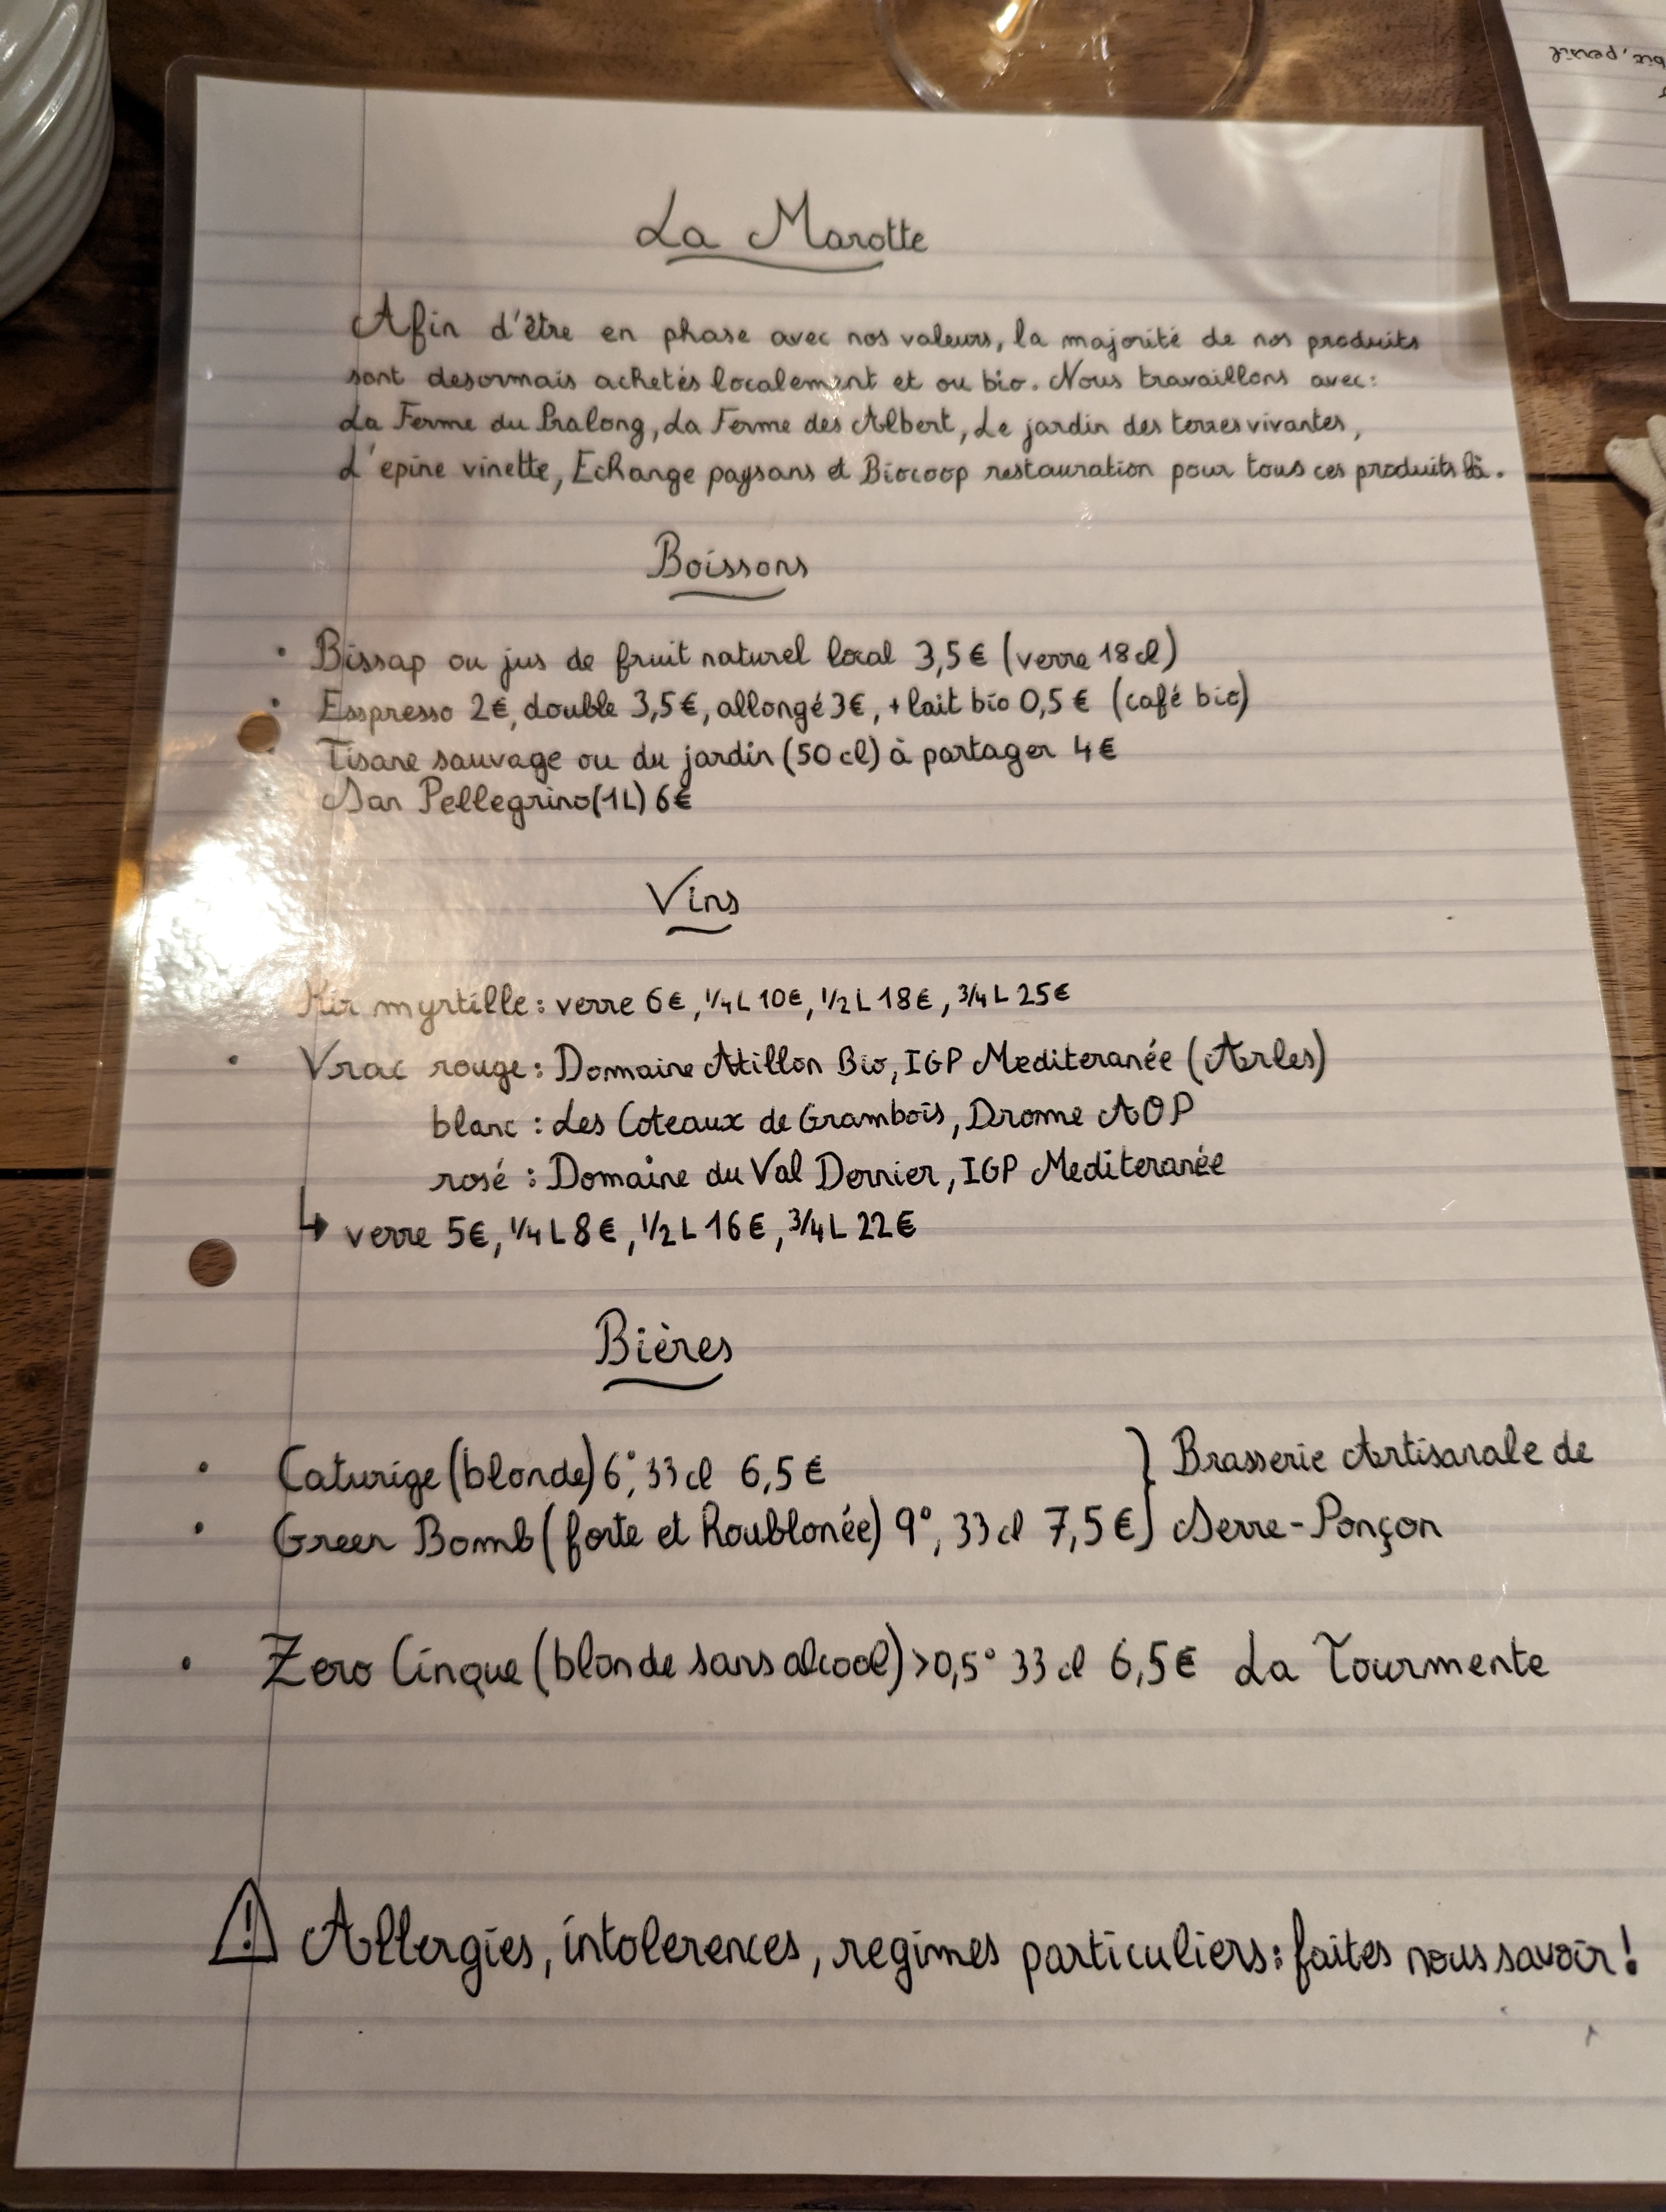 La Marotte
Afin d'être en phase avec nos valeurs, la majorité de nos produits
sont desormais achetés localement et ou bio. Nous travaillons avec:
La Ferme du Pralong, La Ferme des Albert, Le jardin des terres vivantes,
L'epine vinette, Echange paysans et Biocoop restauration pour tous ces produits là.
Boissons
• Bissap ou jus de fruit naturel local 3,5€ (verre 18cl)
• Esspresso 2€, double 3,5€, allongé 3€, + lait bio 0,5€ (café bio)
Tisane sauvage ou du jardin (50cl) à partager 4€
San Pellegrino (1L) 6€
Vins
Kir myrtille: verre 6€, 1/4L 10€, 1/2L 18€, 3/4L 25€
• Vrac rouge: Domaine Attillon Bio, IGP Mediteranée (Arles)
blanc: Les Coteaux de Grambois, Drome AOP
rosé: Domaine du Val Dernier, IGP Mediteranée
↳ verre 5€, 1/4L 8€, 1/2L 16€, 3/4L 22€
Bières
• Caturige (blonde) 6°, 33cl 6,5€ } Brasserie Artisanale de
• Green Bomb (forte et houblonée) 9°, 33cl 7,5€ } Serre-Ponçon
• Zero Cinque (blonde sans alcool) >0,5° 33cl 6,5€ La Tourmente
⚠ Allergies, intolerences, regimes particuliers: faites nous savoir!
persil